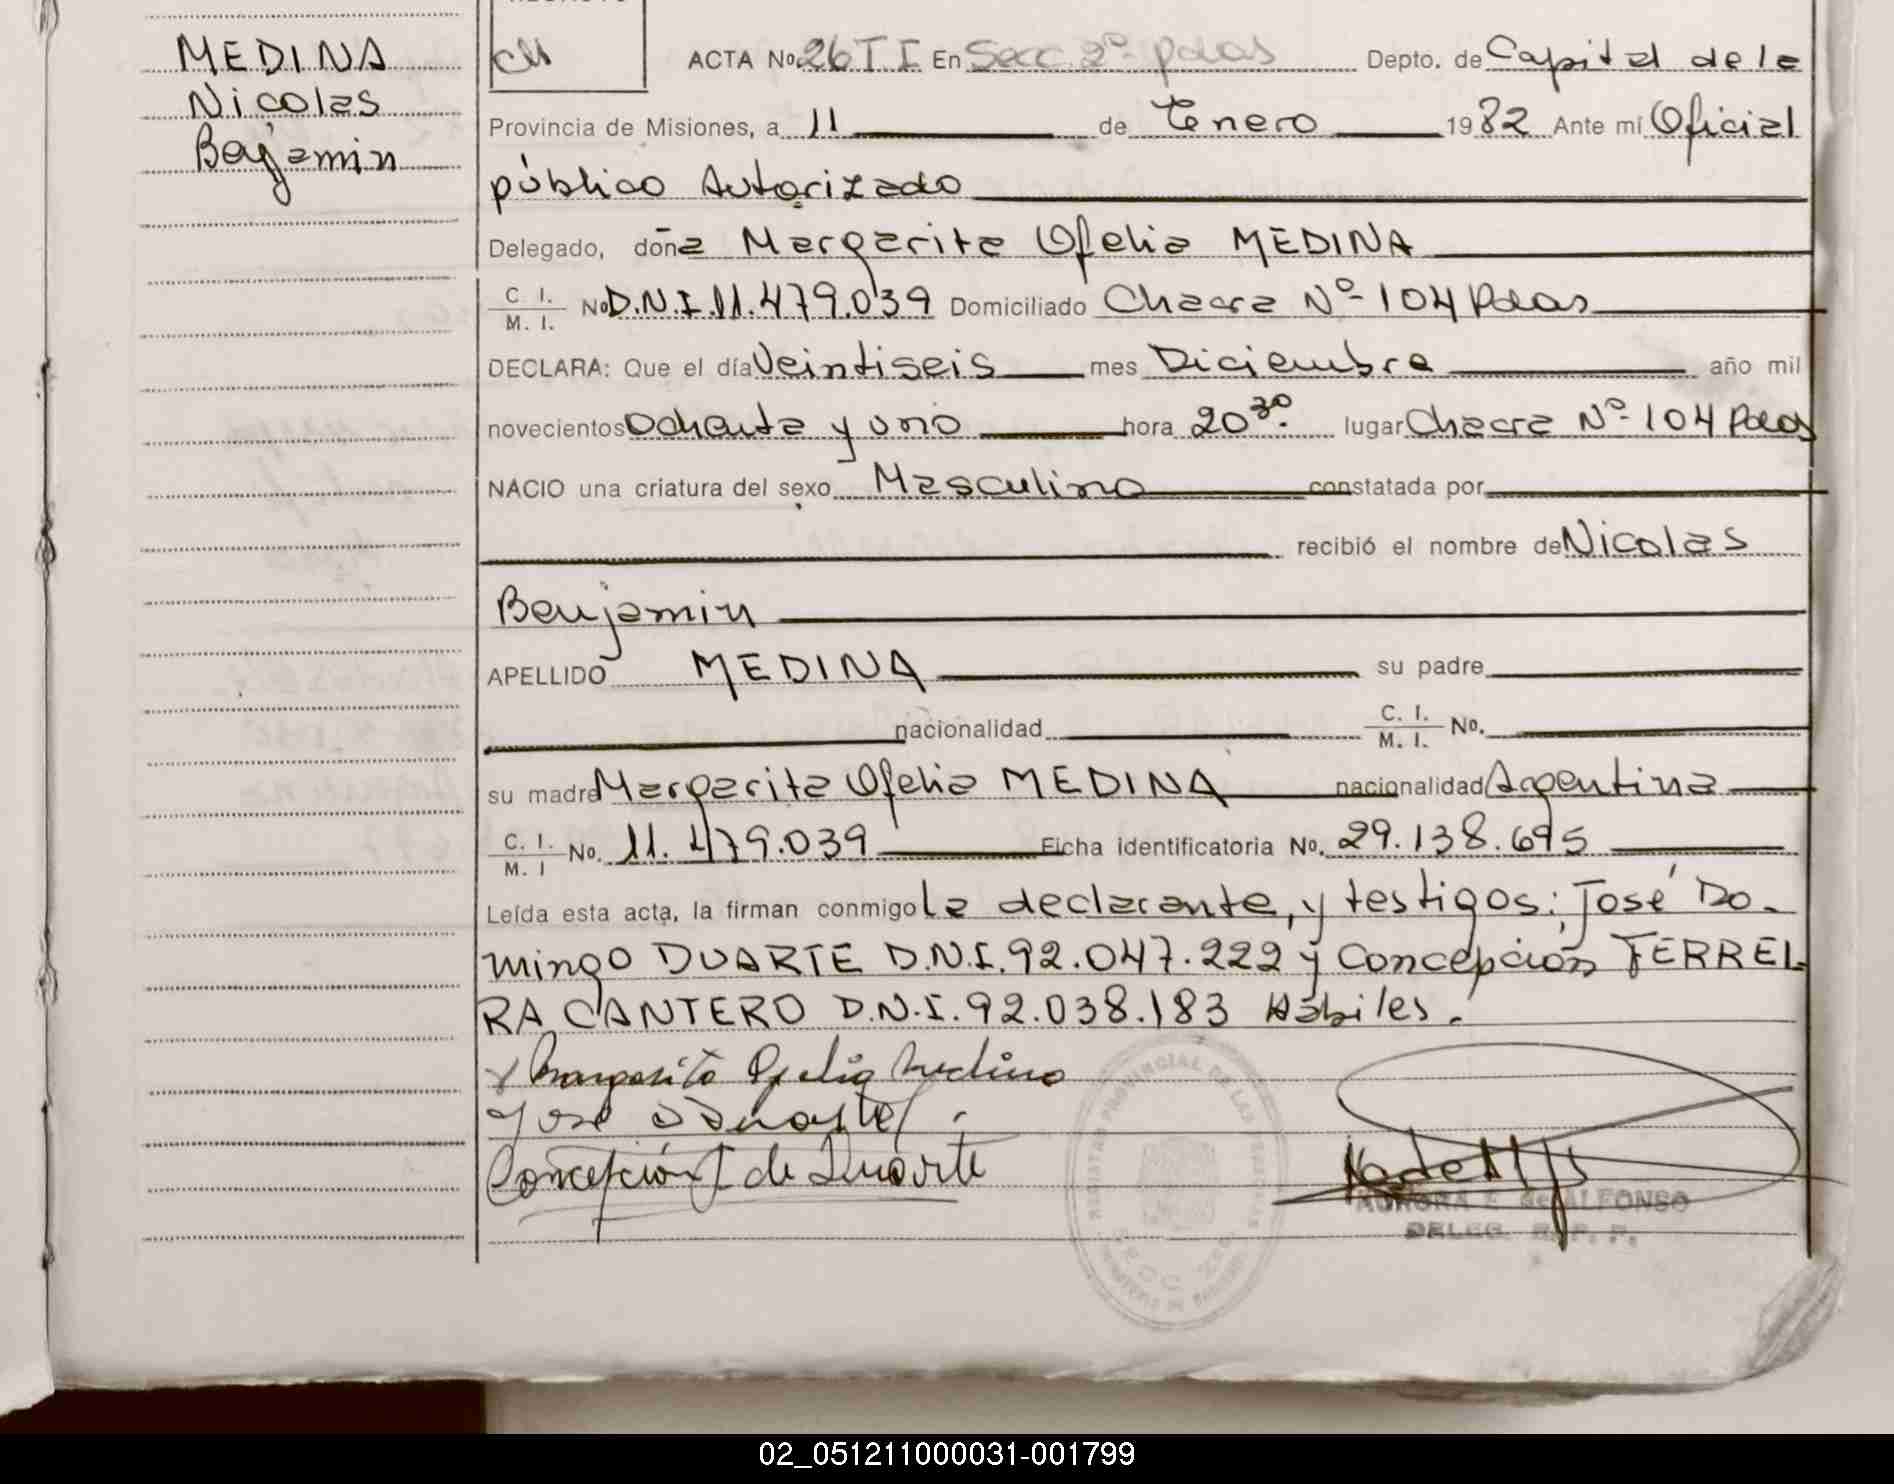 MEDINA
Nicolas
Benjamin
CM
ACTA No. 26 T I En Secc. 2º Pdas Depto. de Capital de la
Provincia de Misiones, a 11 de Enero 1982 Ante mí Oficial
público Autorizado
Delegado, doña Margarita Ofelia MEDINA
C. I.
M. I. No D.N.I. 11.479.039 Domiciliado Chacra Nº 104 Pdas
DECLARA: Que el día Veintiseis mes Diciembre año mil
novecientos Ochenta y uno hora 20 30. lugar Chacra Nº 104 Pdas
NACIO una criatura del sexo Masculino constatada por
recibió el nombre de Nicolas
Benjamin
APELLIDO MEDINA su padre
nacionalidad C. I.
M. I. No.
su madre Margarita Ofelia MEDINA nacionalidad Argentina
C. I.
M. I No. 11.479.039 Ficha identificatoria No. 29.138.695
Leída esta acta, la firman conmigo La declarante, y testigos: José Do-
mingo DUARTE D.N.I. 92.047.222 y Concepción FERREI-
RA CANTERO D.N.I. 92.038.183 Hábiles.
Margarita Ofelia Medina
José D Duarte
Concepción F de Duarte
REGISTRO PROVINCIAL DE LAS PERSONAS
AURORA E de ALFONSO
DELEG. R. P. P.
02_051211000031-001799